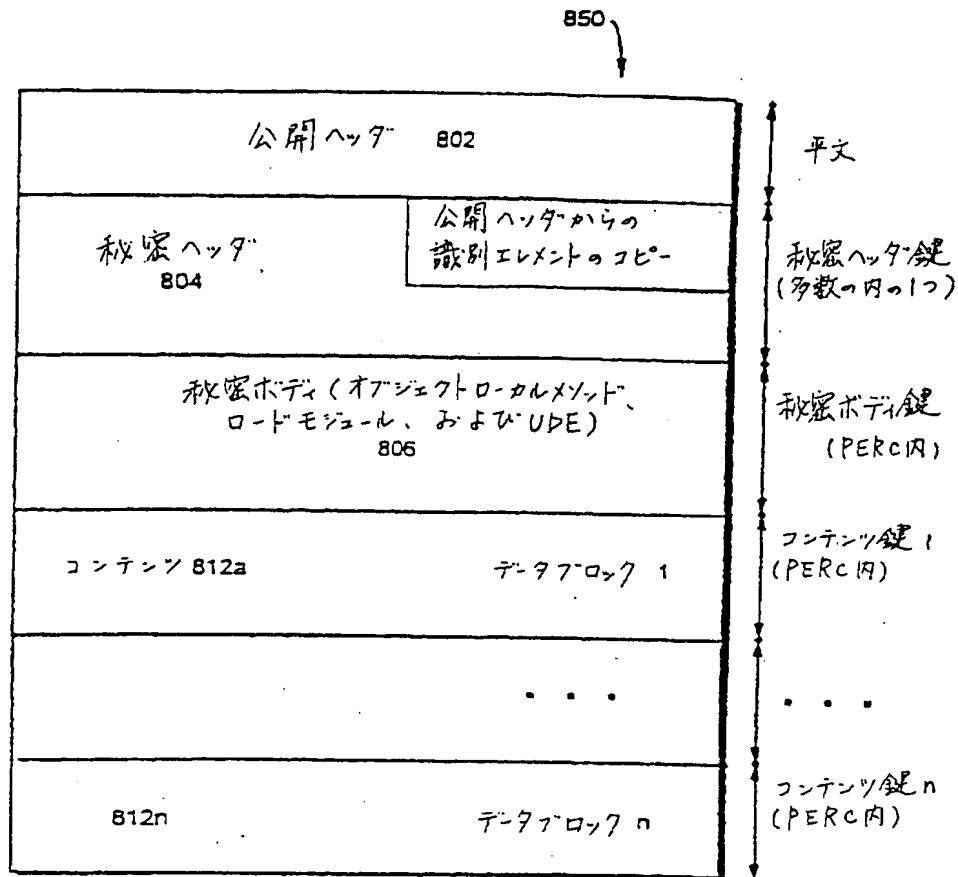 850
公開ヘッダ 802
平文
秘密ヘッダ
804
公開ヘッダからの
識別エレメントのコピー
秘密ヘッダ鍵
(多数の内の1つ)
秘密ボディ(オブジェクトローカルメソッド、
ロードモジュール、およびUDE)
806
秘密ボディ鍵
(PERC内)
コンテンツ 812a データブロック 1
コンテンツ鍵1
(PERC内)
. . .
. . .
812n データブロック n
コンテンツ鍵n
(PERC内)